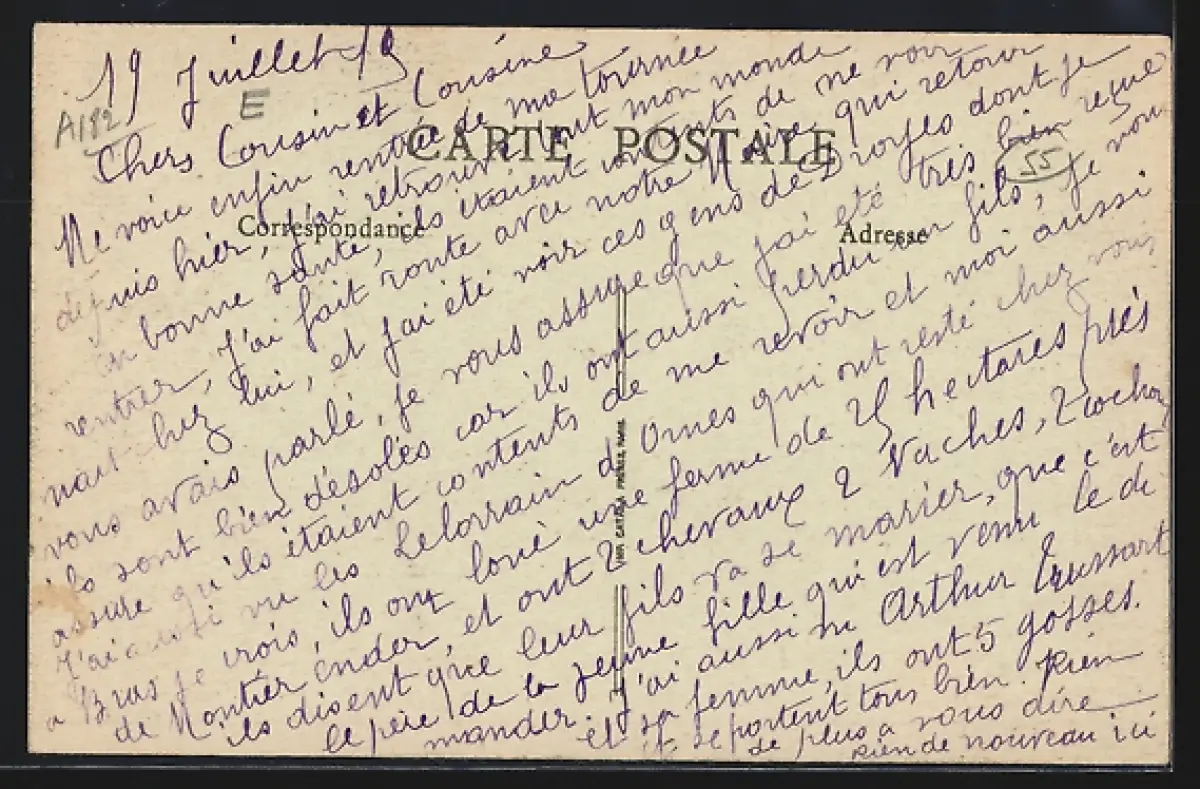 19 Juillet 19
A182
E
Chers Cousin et Cousine
Me voici enfin rentré de ma tournée
depuis hier, j'ai retrouvé tout mon monde
en bonne santé, ils étaient contents de me voir
rentrer, J'ai fait route avec notre Maire, qui retour
nait chez lui, et j'ai été voir ces gens de Droyes dont je
vous avais parlé, je vous assure que j'ai été très bien reçue
ils sont bien désolés car ils ont aussi perdu un fils, je vous
assure qu'ils étaient contents de me revoir et moi aussi
J'ai aussi vu les Lelorrain d'Ornes qui ont resté chez vous
a Bras je crois, ils ont loué une ferme de 25 hectares près
de Montier ender, et ont 2 chevaux 2 vaches, 2 cochons
ils disent que leur fils va se marier, que c'est
le père de la jeune fille qui est venu le de
mander. J'ai aussi vu Arthur Trussart
et sa femme, ils ont 5 gosses.
se portent tous bien. Rien
de plus a vous dire
rien de nouveau ici
CARTE POSTALE
Correspondance
Adresse
55
IMP. CATALA FRÈRES, PARIS